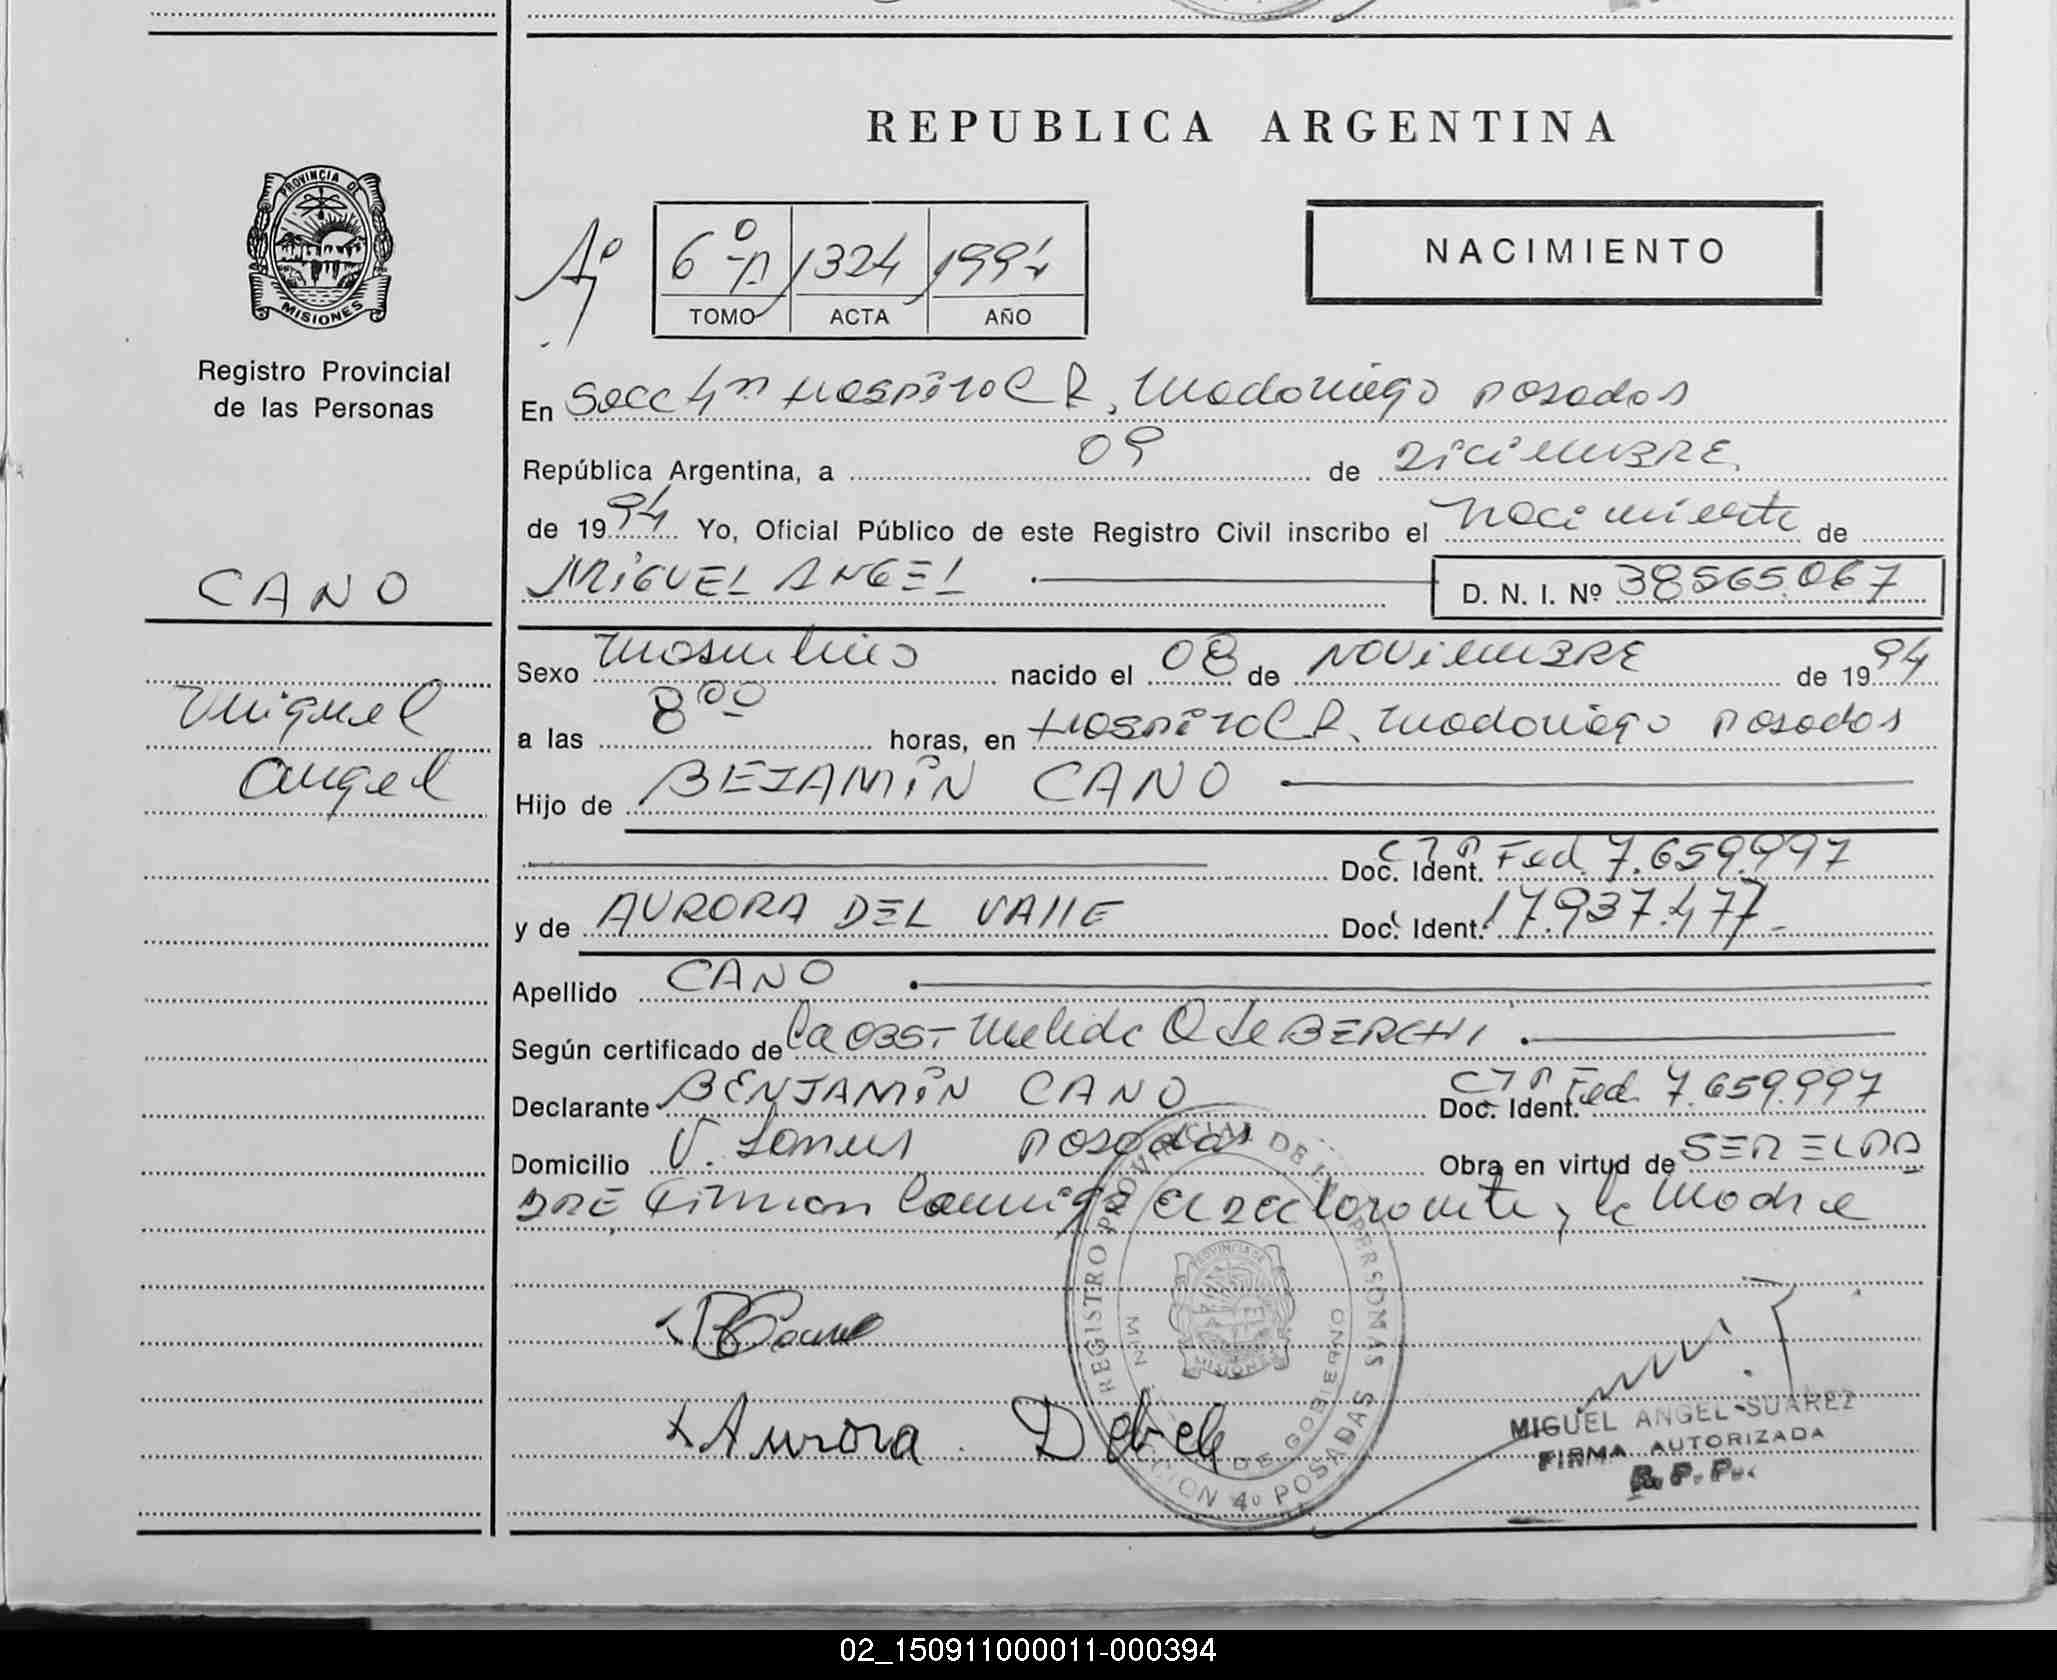 REPUBLICA ARGENTINA
PROVINCIA DE
MISIONES
Registro Provincial
de las Personas
6º 1324 1994
TOMO ACTA AÑO
NACIMIENTO
En Secc 4ta Hospital R. Madariaga Posadas
República Argentina, a 09 de Diciembre
de 1994 Yo, Oficial Público de este Registro Civil inscribo el Nacimiento de
CANO
MIGUEL ANGEL D. N. I. Nº 38565.067
Sexo Masculino nacido el 08 de NOVIEMBRE de 1994
Miguel
a las 8 00 horas, en Hospital R. Madariaga Posadas
Angel
Hijo de BEJAMIN CANO
Doc. Ident. CI P Fed. 7.659.997
y de AURORA DEL VALLE Doc. Ident. 17.937.477
Apellido CANO
Según certificado de la OBST
Declarante BENJAMIN CANO Doc. Ident. CI P Fed. 7.659.997
Domicilio Posadas Obra en virtud de SER EL PA
DRE, Firman Conmigo el declarante y la Madre
B Cano
Aurora
REGISTRO PROVINCIAL DE LAS PERSONAS
MIN. DE GOBIERNO
PROVINCIA DE
MISIONES
SECCION 4º POSADAS
MIGUEL ANGEL SUAREZ
FIRMA AUTORIZADA
R. P. P.
02_150911000011-000394